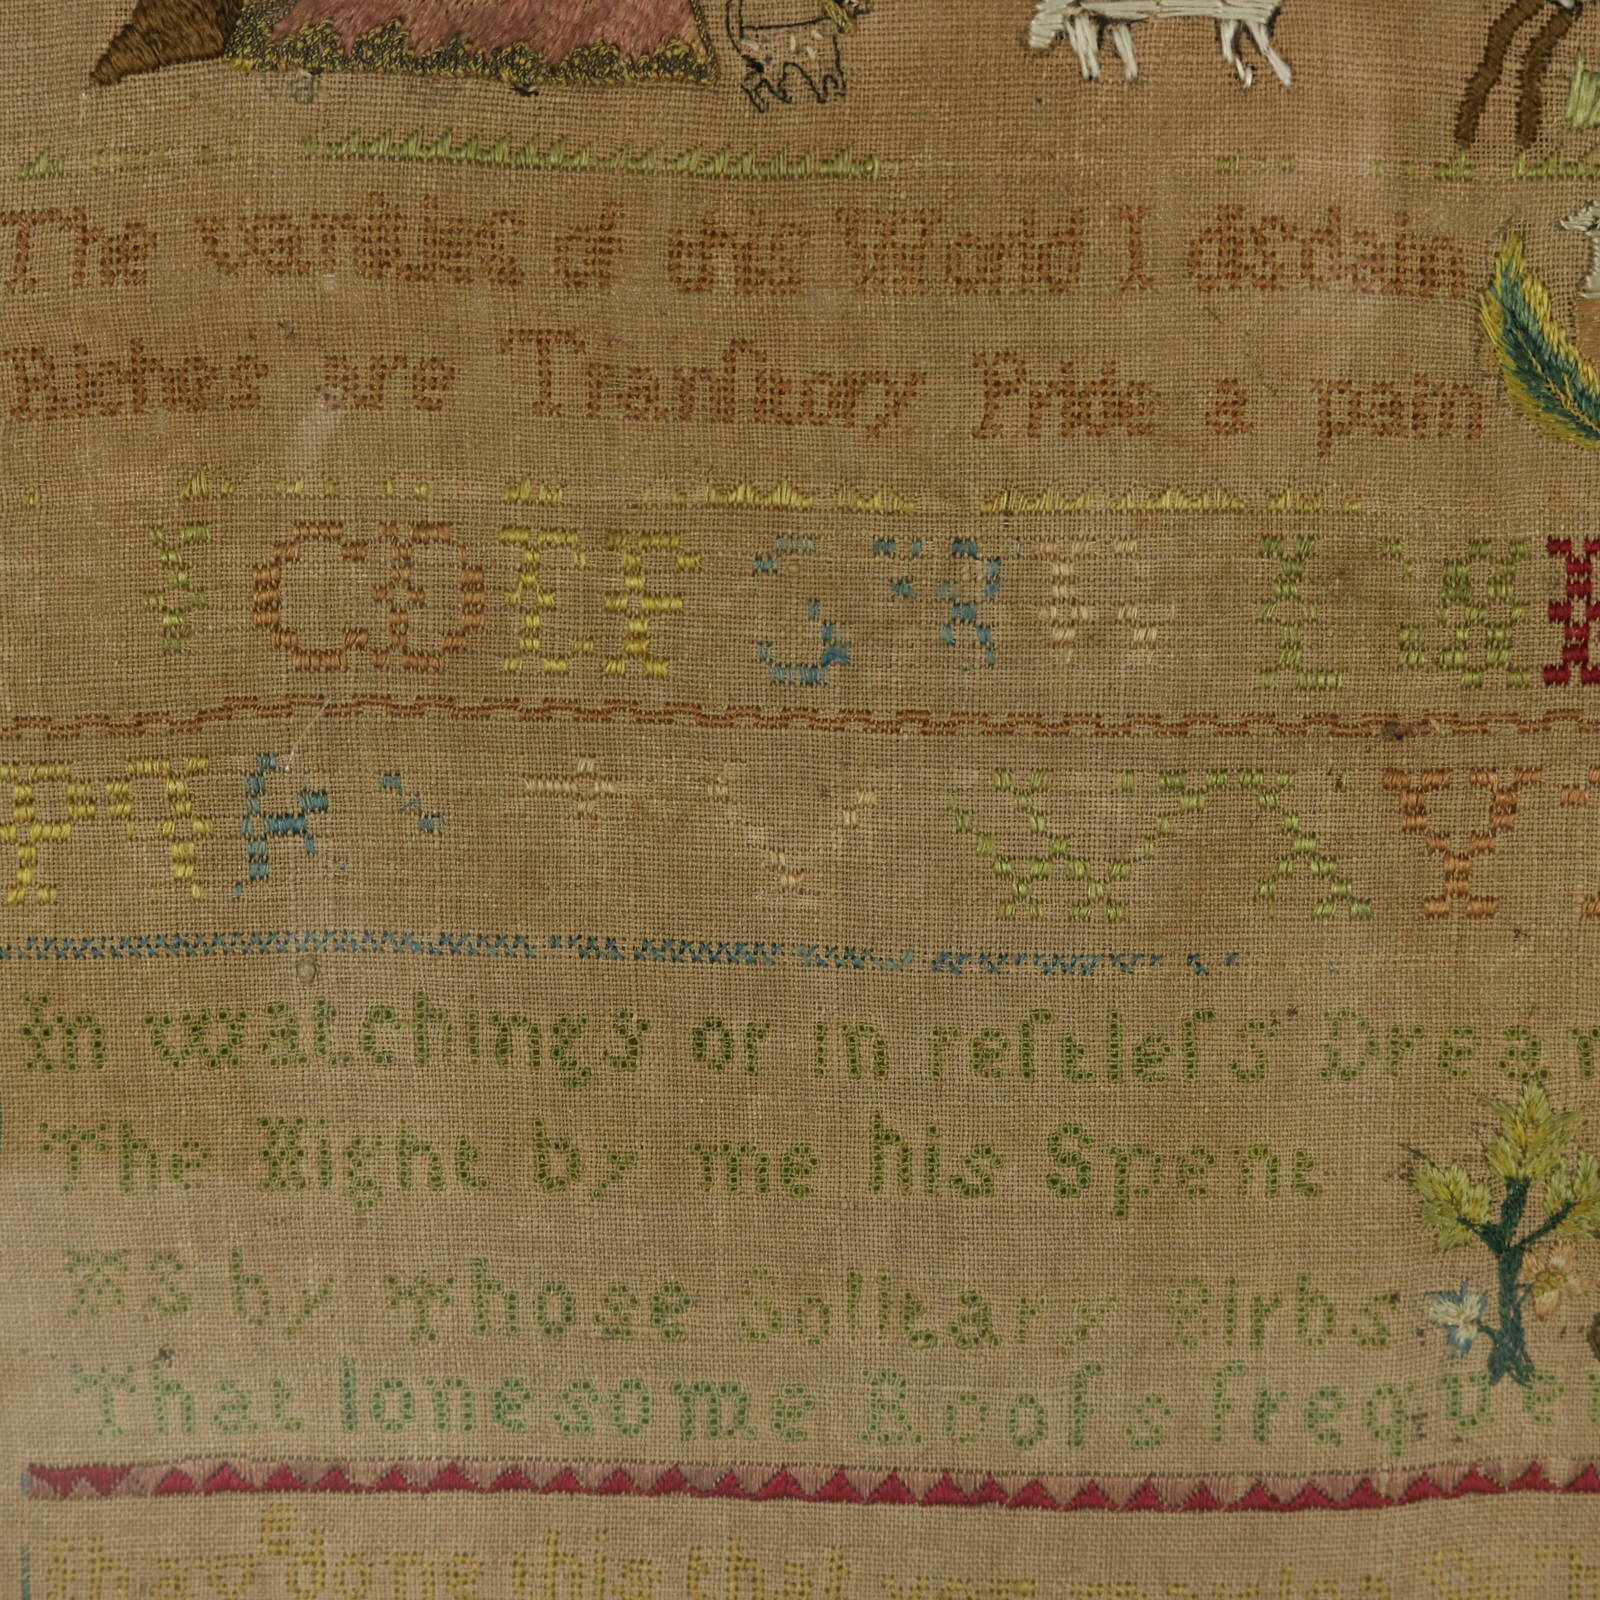 The vanities of this World I disdain
Riches are Tranſitory Pride a pain
I C D E F G K L
P R W X Y
In watchings or in reſtleſs Drea
The Night by me his Spent
AS by Those Solitary Birds
That lonesome Roofs frequen
I have done this that you